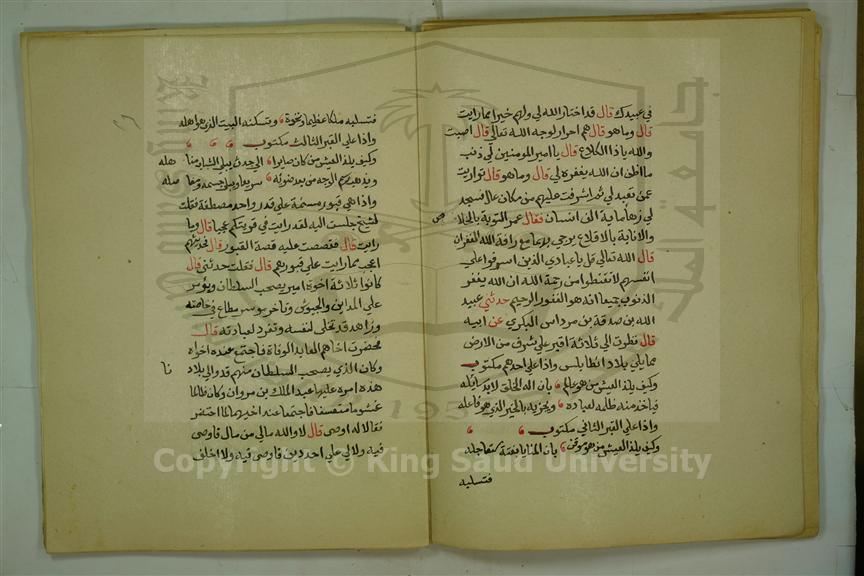 في عبيدك قال قد اختار الله لي ولهم خيرا مما رايت
قال وما هو قال هم احرار لوجه الله تعالى قال اصبت
والله ياذا الكلاع قال يا امير المومنين لي ذنب
ما اظن ان الله يغفره لي قال وما هو قال تواريت
عمن تعبد لي ثم اشرفت عليهم من مكان عال فسجد
لي زها مايه الف انسان فقال عمر التوبة بالاخلاص
والانابة بالاقلاع يرجى بها مع رافة الله الغفران
قال الله تعالى قل يا عبادي الذين اسرفوا على
انفسهم لا تقنطوا من رحمة الله ان الله يغفر
الذنوب جميعا انه هو الغفور الرحيم حدثني عبيد
الله بن صدقة بن مرداس البكري عن ابيه
قال نظرت الى ثلاثة اقبر على شرف من الارض
مما يلي بلاد انطابلس واذا على احدهم مكتوب
وكيف يلذ العيش من هو عالم بان اله الخلق لا بد سائله
فياخذ منه ظلمه لعباده ويجزيه بالخير الذي هو فاعله
واذا على القبر الثاني مكتوب
وكيف يلذ العيش من هو موقن بان المنايا بغتة ستعاجله
فتسلبه
فتسلبه ملكا عظيما ونخوة وتسكنه البيت الذي هو اهله
واذا على القبر الثالث مكتوب
وكيف يلذ العيش من كان صايرا الى جدث يبلي الشباب مناهله
ويذهب رسم الوجه من بعد ضوئه سريعا ويبلى جسمه ومفاصله
واذا هي قبور مسنمة على قدر واحد مصطفة فقلت
لشيخ جلست اليه لقد رايت في قريتكم عجبا قال وما
رايت قال فقصصت عليه قصة القبور قال فحديثهم
اعجب مما رايت على قبورهم قال فقلت حدثني قال
كانوا ثلاثة اخوة امير يصحب السلطان ويؤمر
على المداين والجيوش وتاجر موسر مطاع في خاصته
وزاهد قد تخلى لنفسه وتفرد لعبادته قال
فحضرت اخاهم العابد الوفاة فاجتمع عنده اخواه
وكان الذي يصحب السلطان منهم قد ولي بلادنا
هذه امره عليها عبد الملك بن مروان وكان ظالما
غشوما متعسفا فاجتمعا عند اخيهما لما احتضر
فقالا له اوصي قال لا والله مالي من مال فاوصى
فيه ولا لي على احد دين فاوصى فيه ولا اخلف
Copyright © King Saud University
جامعة الملك سعود
1957